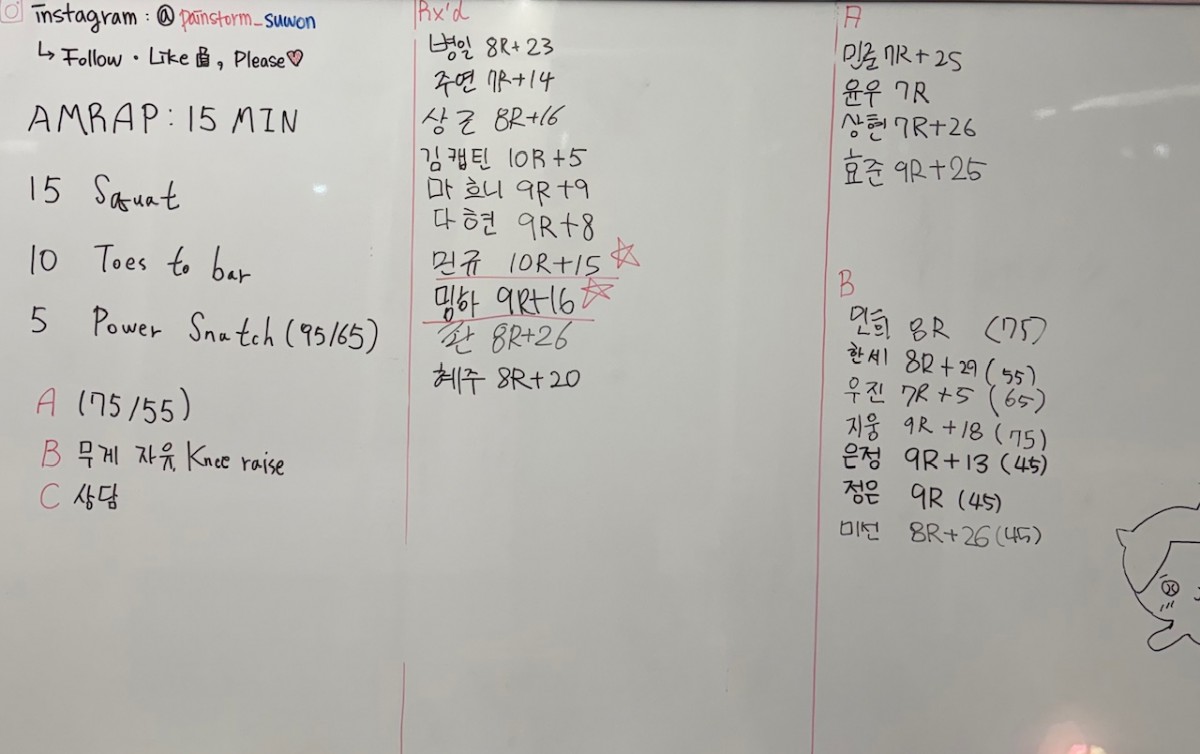 instagram : @ painstorm_suwon
↳ Follow · Like, Please♡
AMRAP : 15 MIN
15 Squat
10 Toes to bar
5 Power Snatch (95/65)
A (75/55)
B 무게 자유, Knee raise
C 상담
Rx'd
병일 8R+23
주연 7R+14
상근 8R+16
김캡틴 10R+5
마흐니 9R+9
다현 9R+8
민규 10R+15 ☆
밈하 9R+16 ☆
8R+26
혜주 8R+20
A
민준 7R+25
윤우 7R
상현 7R+26
효준 9R+25
B
민희 8R (75)
한세 8R+29 (55)
우진 7R+5 (65)
지웅 9R+18 (75)
은정 9R+13 (45)
정은 9R (45)
미선 8R+26 (45)